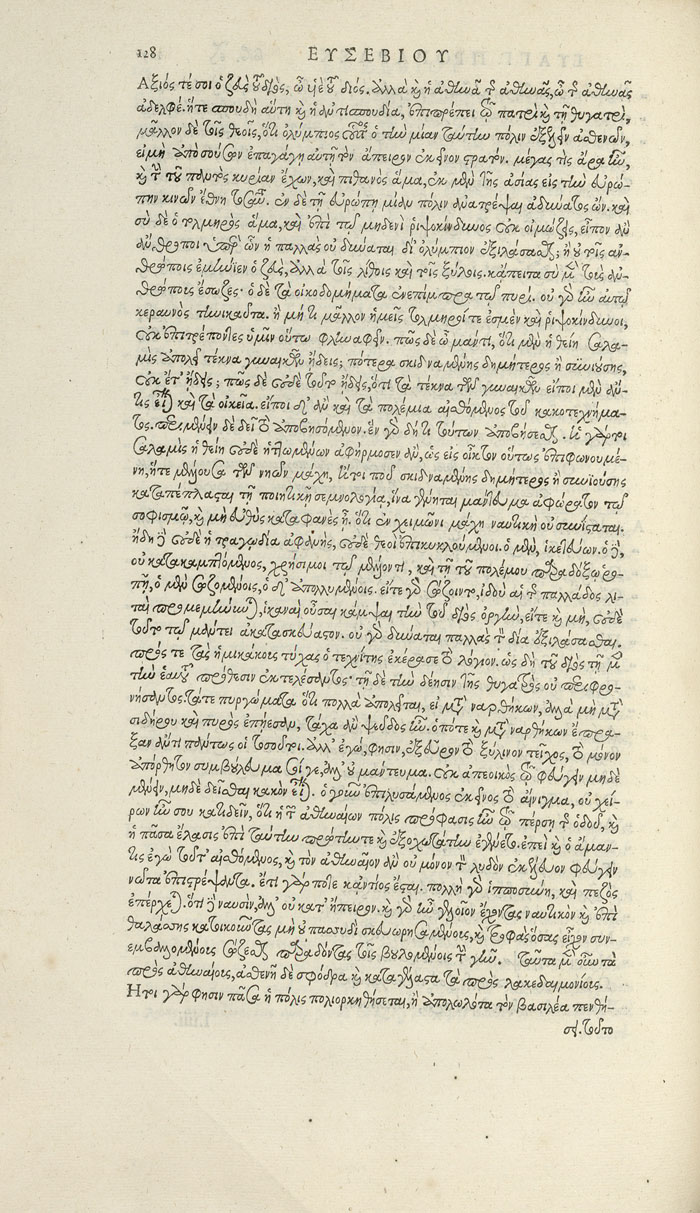 128 ΕΥΣΕΒΙΟΥ
Ἄξιός τέ σοι ὁ ζεὺς τοῦ διὸς, ὦ υἱὲ τοῦ διός. ἀλλὰ καὶ ἡ ἀθηνᾶ τῆς ἀθηνᾶς, ὦ τῆς ἀθηνᾶς
ἀδελφέ. ἥτε σπουδὴ αὕτη καὶ ἡ ἀντισπουδία, ἐπιπρέπει τῷ πατρὶ καὶ τῇ θυγατρὶ,
μᾶλλον δὲ τοῖς θεοῖς, ὅτι ὀλύμπιος οὗτος ὁ τὴν μίαν ταύτην πόλιν ἐξελεῖν ἀσθενῶν,
εἰ μὴ ἀπὸ σούσων ἐπαγάγῃ αὐτῇ τὸν ἄπειρον ἐκεῖνον στρατόν. μέγας τὶς ἄρα ἦν,
καὶ τὴν τοῦ παντὸς κυρίαν ἔχων, καὶ πιθανὸς ἅμα, ἐκ μὲν τῆς ἀσίας εἰς τὴν εὐρώ-
πην κινῶν ἔθνη τοσαῦτα. ἐν δὲ τῇ εὐρώπῃ μίαν πόλιν ἀνατρέψαι ἀδύνατος ὤν. καὶ
σὺ δὲ ὁ τολμηρὸς ἅμα, καὶ ἐπὶ τῷ μηδενὶ ῥιψοκίνδυνος οὐκ οἰμώζεις, εἶπον ἂν
ἄνθρωποι ὑπὲρ ὧν ἡ παλλὰς οὐ δύναται δί' ὀλύμπιον ἐξιλάσασθαι; ἢ οὐ τοῖς αν-
θρώποις ἐμήνιεν ὁ ζεὺς, ἀλλὰ τοῖς λίθοις καὶ τοῖς ξύλοις. κἄπειτα σὺ μὲν τοὺς ἀν-
θρώποις ἔσωζες· ὁ δὲ τὰ οἰκοδομήματα ἐνεπίμπρα τῷ πυρί. οὐ γὰρ ἦν αὐτῷ
κεραυνὸς τηνικαῦτα. ἢ μήτι μᾶλλον ἡμεῖς τολμηροί τε ἐσμὲν καὶ ῥιψοκίνδυνοι,
οὐκ ἐπιτρέποντες ὑμῖν οὕτω φλυαρεῖν. πῶς δὲ ὦ μάντι, ὅτι μὲν ἡ θείη σαλα-
μὶς ἀπολεῖ τέκνα γυναικῶν ᾔδεις; πότερα σκιδναμένης δημήτερος ἢ συνιούσης,
οὐκ ἔτ' ᾔδης; πῶς δὲ οὐδὲ τοῦτο ᾔδης, ὅτι τὰ τέκνα τῶν γυναικῶν εἴποι μὲν ἄν-
τις εἶναι καὶ τὰ οἰκεῖα. εἴποι δ' ἂν καὶ τὰ πολέμια αἰσθόμενος τοῦ κακοτεχνήμα-
τος. περιμένειν δὲ δεῖ τὸ ἀποβησόμενον. ἓν γὰρ δήτι τούτων ἀποβήσεται. ἥ γάρ τοι
σαλαμὶς ἡ θείη οὐδὲ ἡττωμένων ἀφήρμοσεν ἂν, ὡς εἰς οἶκτον οὕτως ἐπιφωνουμέ-
νη, ἥτε μέλλουσα τῶν νηῶν μάχη, ἤτοι που σκιδναμένης δημήτερος ἢ συνιούσης
καταπέπλασται τῇ ποιητικῇ σεμνολογίᾳ, ἵνα γένηται μάντευμα ἀφώρατον τῷ
σοφισμῷ, καὶ μὴ εὐθὺς καταφανὲς ᾖ. ὅτι ἐν χειμῶνι μάχη ναυτικὴ οὐ συνίσταται.
ἤδη δὲ οὐδὲ ἡ τραγῳδία ἀφανὴς, οὐδὲ θεοὶ ἐπικυκλούμενοι. ὁ μὲν, ἱκετεύων. ὁ δὲ,
οὐ κατακαμπτόμενος, χρήσιμοι τῷ μέλλοντι, καὶ τῇ τοῦ πολέμου παραδόξῳ ῥο-
πῇ, ὁ μὲν σωζομένοις, ὁ δ' ἀπολλυμένοις. εἴτε γὰρ σώζοιντο, ἰδοὺ αἱ τῆς παλλάδος λι-
ταὶ προμεμήνυνται, ἱκαναὶ οὖσαι κάμψαι τὴν τοῦ διὸς ὀργὴν, εἴτε καὶ μὴ, οὐδὲ
τοῦτο τῷ μάντει ἀκατασκεύαστον. οὐ γὰρ δύναται παλλὰς τὸν δία ἐξιλάσασθαι.
πρός τε τὰς ἡμικάκοις τύχας ὁ τεχνίτης ἐκέρασε τὸ λόγιον. ὡς δὴ τοῦ διὸς τῇ μὲν
τὴν ἑαυτοῦ πρόθεσιν ἐκτελέσαντος· τῇ δὲ τὴν δέησιν τῆς θυγατρὸς οὐ περιφρο-
νήσαντος. τάτε πυργώματα ὅτι πολλὰ ἀπολεῖται, εἰ μετὰ ναρθήκων, ἀλλὰ μὴ μετὰ
σιδήρου καὶ πυρὸς ἐπῄεσαν, τάχα ἂν ψεῦδος ἦν. ὁπότε καὶ μετὰ ναρθήκων ἔπρα-
ξαν ἄντι πάντως οἱ τοσοῦτοι. ἀλλ' ἐγώ, φησιν, ἐξεῦρον τὸ ξύλινον τεῖχος, τὸ μόνον
ἀπόρθητον συμβούλευμα σόν γε, ἀλλ' οὐ μάντευμα. οὐκ ἀπεοικὸς τῷ φεύγειν μηδὲ
μένειν, μηδὲ δεῖσθαι κακὸν εἶναι. ὁ γοῦν ἐπιλυσάμενος ἐκεῖνος τὸ αἴνιγμα, οὐ χεί-
ρων ἦν σου κατιδεῖν, ὅτι ἡ τῶν ἀθηναίων πόλις πρόφασις ἦν τῷ πέρσῃ τῆς ὁδοῦ, καὶ
ἡ πᾶσα ἔλασις ἐπὶ ταύτην πρώτην τε καὶ ἐξοχωτάτην ἐγένετο. ἐπεὶ καὶ ὁ ἀμαν-
τις ἐγὼ τοῦτ' αἰσθόμενος, καὶ τὸν ἀθηναῖον ἂν οὐ μόνον τὸν λυδὸν ἐκέλευον φεύγειν
νῶτα ἐπιστρέψαντα. ἔτι γάρ ποτε κἀντίος ἔσται. πολλὴ γὰρ ἱπποσύνη, καὶ πεζὸς
ἐπέρχεται. ὅτι δὲ ναυσὶν, ἀλλ' οὐ κατ' ἤπειρον. καὶ γὰρ ἦν γελοῖον ἔχοντας ναυτικὸν καὶ ἐπὶ
θαλάσσης κατοικοῦντας μὴ οὐ πασσυδὶ σκευωρησαμένοις, καὶ τροφὰς ὅσας εἶχον συν-
εμβαλομένοις σώζεσθαι παραδόντας τοῖς βουλομένοις τὴν γῆν. Ταῦτα μὲν οὖν τὰ
πρὸς ἀθηναίοις, ἀσθενῆ δὲ σφόδρα καὶ καταγέλαστα τὰ πρὸς λακεδαιμονίοις.
Ἤτοι γάρ φησιν πᾶσα ἡ πόλις πολιορκηθήσεται, ἢ ἀπολωλότα τὸν βασιλέα πενθή-
σει. τοῦτο